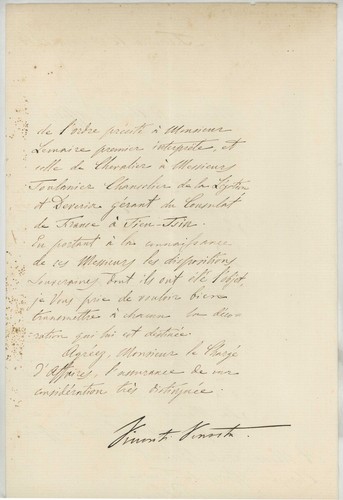 de l'ordre précité à Monsieur
Lemaire premier interprète, et
celle de Chevalier à Messieurs
Fontanier Chancelier de la Légation
et Deveria gérant du Consulat
de France à Tien-Tsin.
En portant à la connaissance
de ces Messieurs les dispositions
souveraines, dont ils ont été l'objet,
je Vous prie de vouloir bien
transmettre à chacun la déco-
ration qui lui est destinée.
Agréez, Monsieur le Chargé
d'Affaires, l'assurance de ma
considération très distinguée.
Visconti Venosta